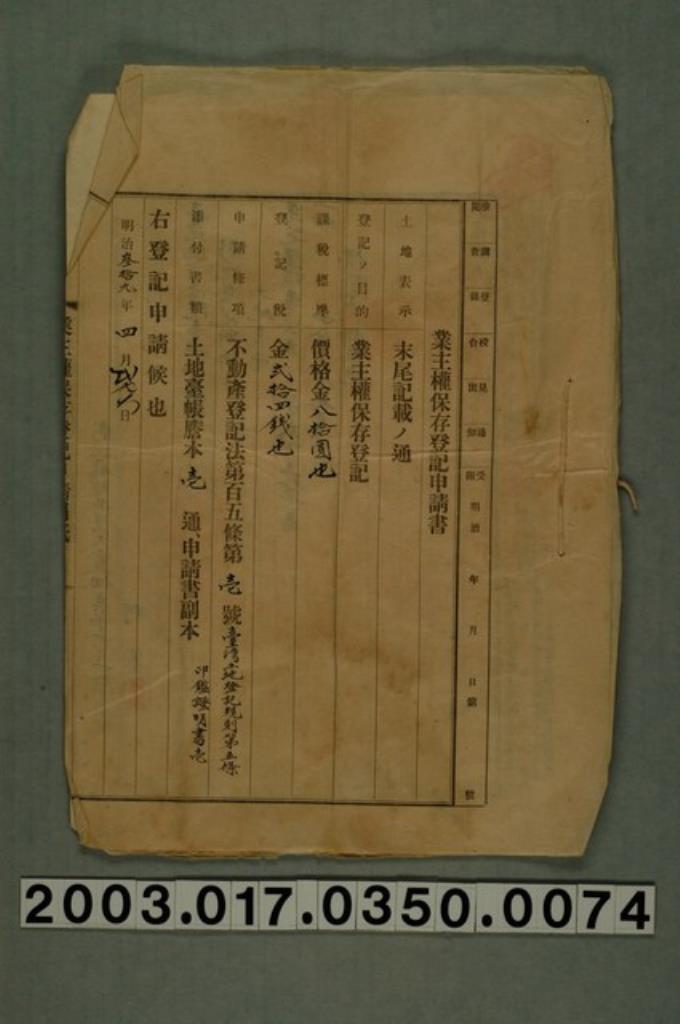 明治 年 月 日 第 號
業主權保存登記申請書
土地表示 末尾記載ノ通
登記ノ目的 業主權保存登記
課稅標準 價格金八拾圓也
登記稅 金貳拾四錢也
申請條項 不動產登記法第百五條第壱號臺灣土地登記規則第五條
添付書類 土地臺帳謄本壱通、申請書副本 印鑑證明書壱
右登記申請候也
明治參拾九年四月 日
2003.017.0350.0074